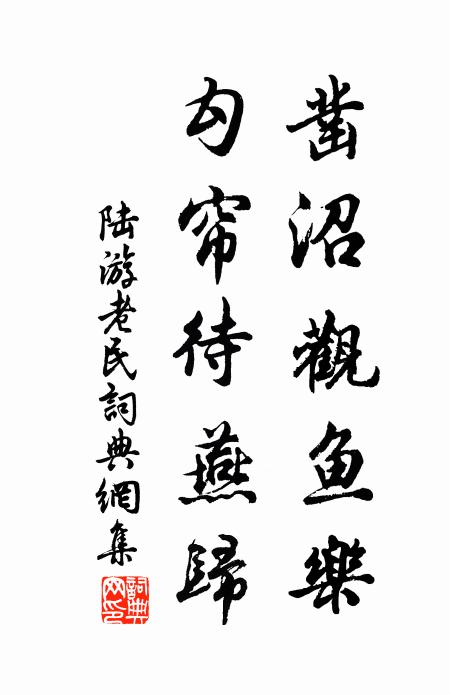 凿沼觀鱼樂
勾帘待燕歸
陆游老民詞典網集
詞典网印